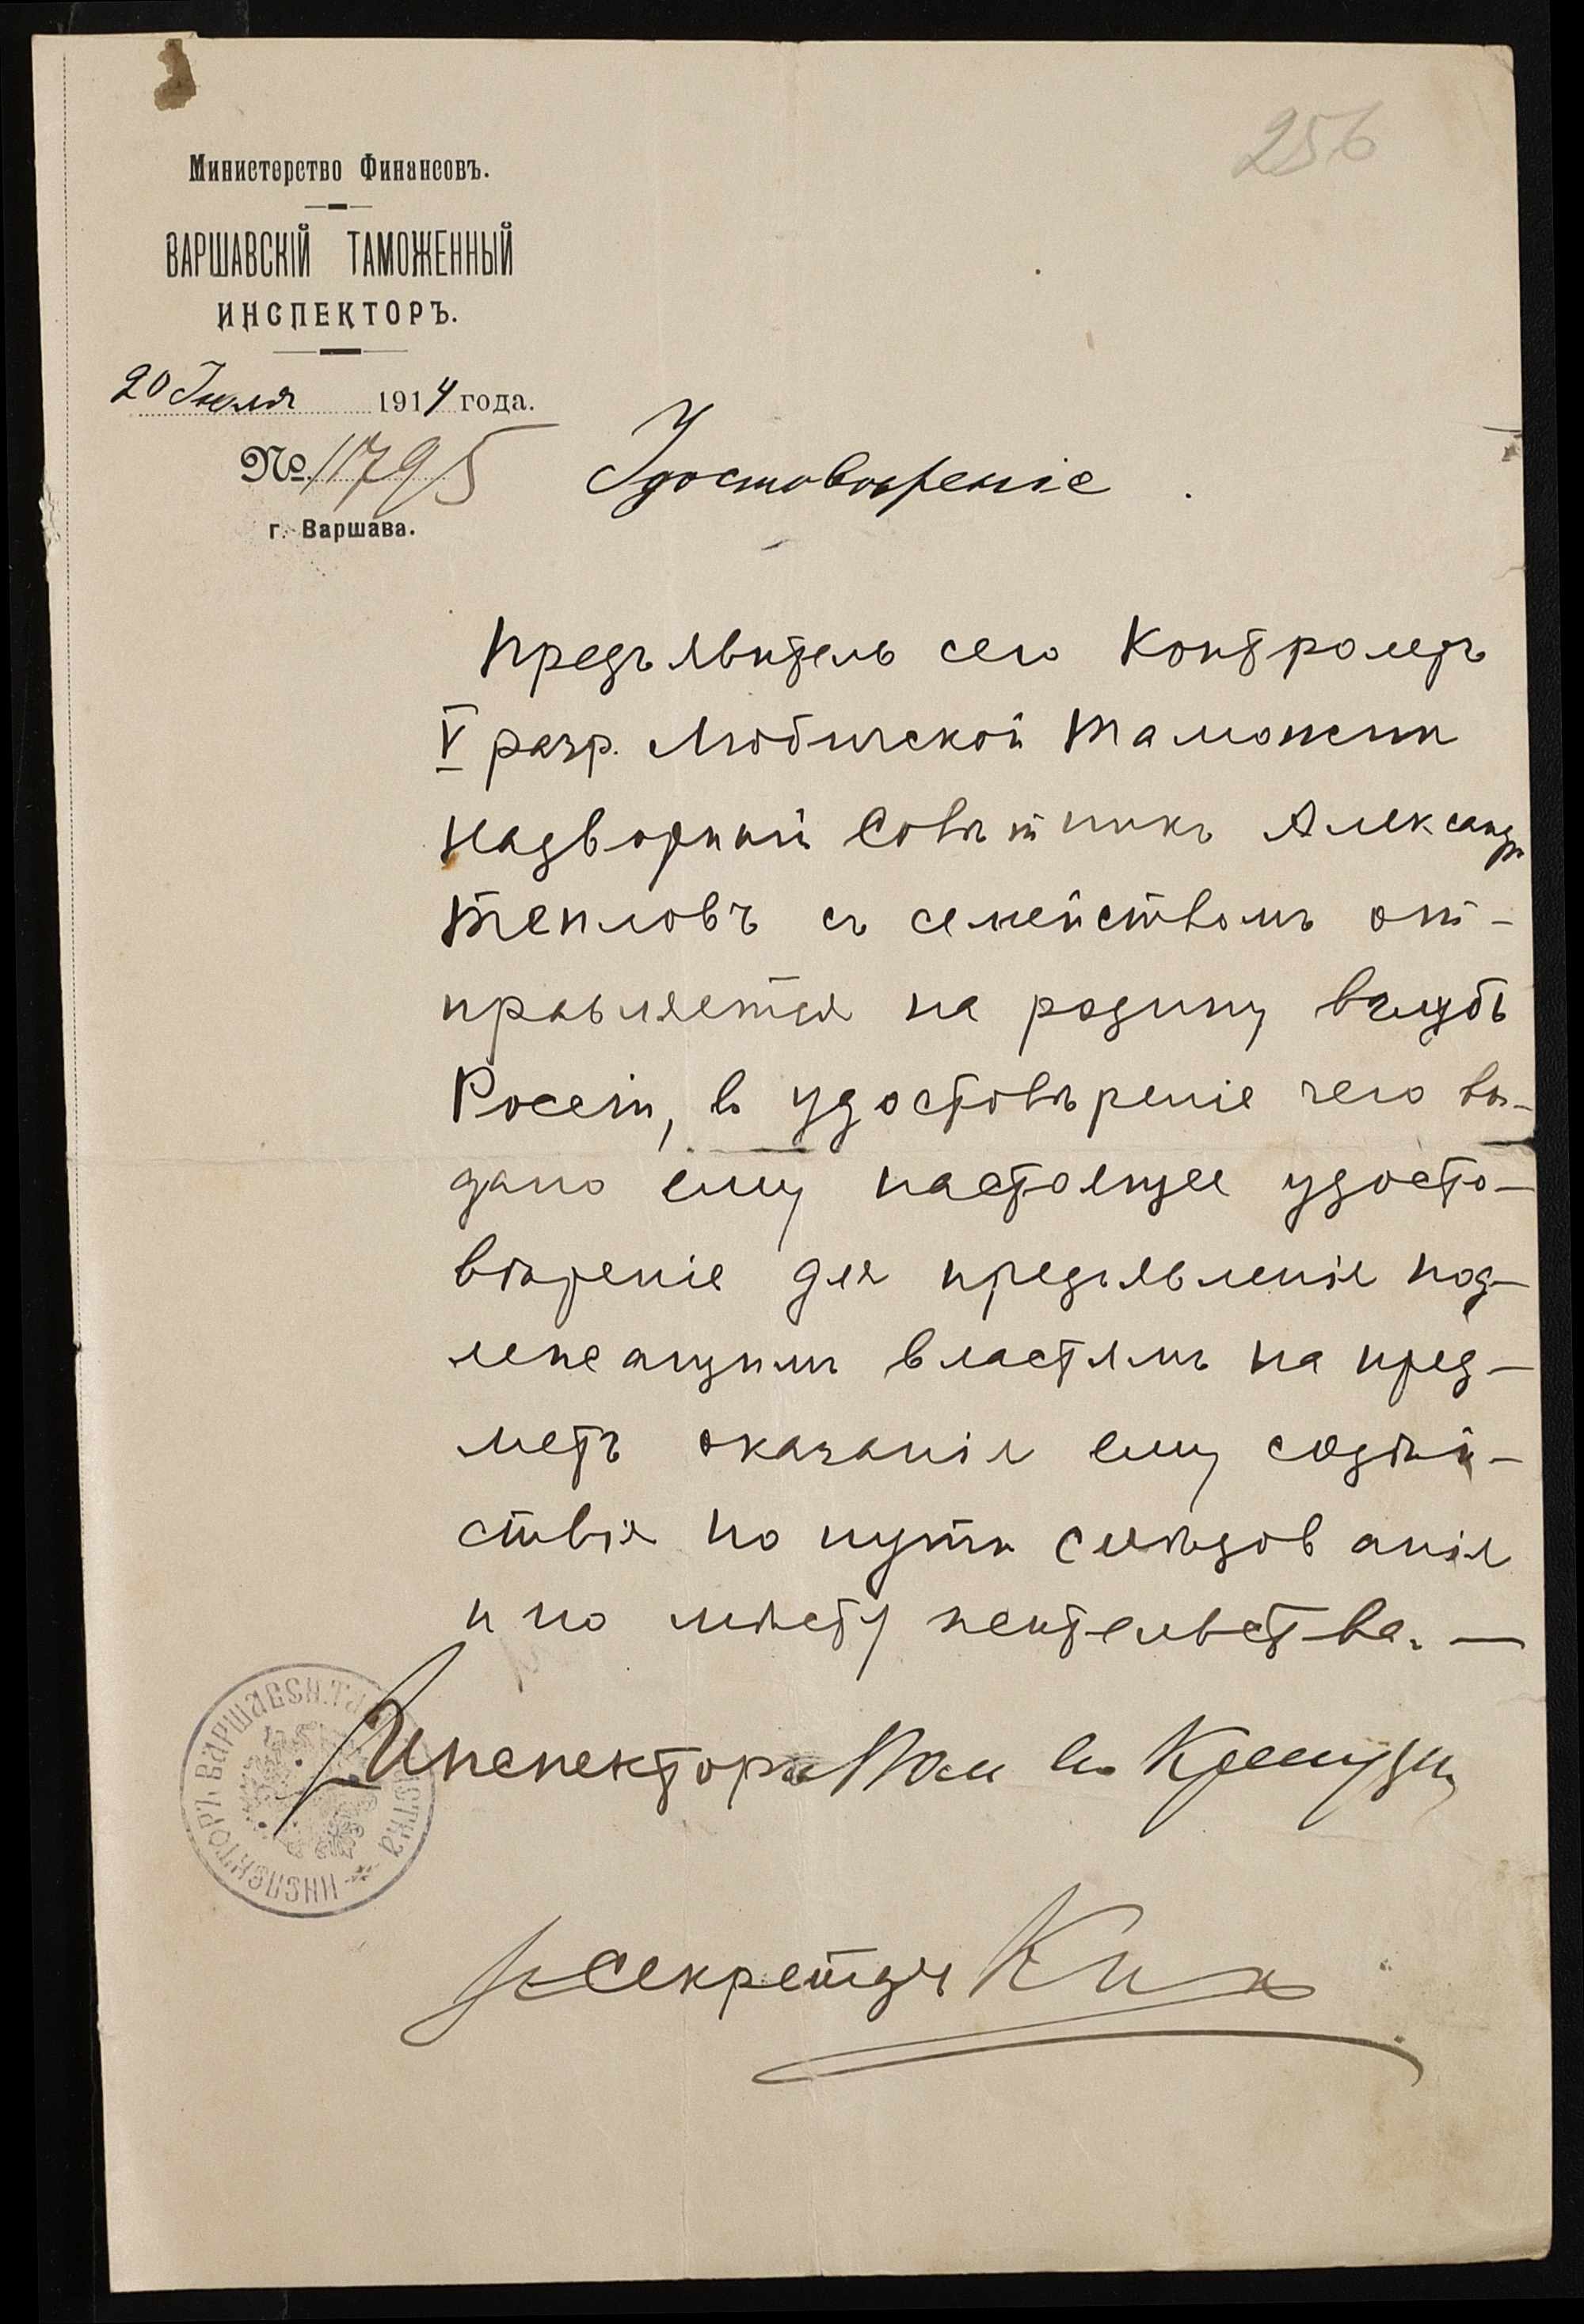 256
Министерство Финансовъ.
ВАРШАВСКІЙ ТАМОЖЕННЫЙ
ИНСПЕКТОРЪ.
20 Іюля 1914 года.
№ 11795
г. Варшава.
Удостовѣреніе
Предъявитель сего Контролеръ
V разр. Любичской Таможни
Надворный Совѣтникъ Александръ
Тепловъ съ семействомъ от-
правляется на родину вглубь
Россіи, въ удостовѣреніе чего вы-
дано ему настоящее удосто-
вѣреніе для предъявленія под-
лежащимъ властямъ на пред-
метъ оказанія ему содѣй-
ствія по пути слѣдованія
и по мѣсту жительства. —
Инспекторъ
Секретарь
ИНСПЕКТОРЪ ВАРШАВСК. ТА